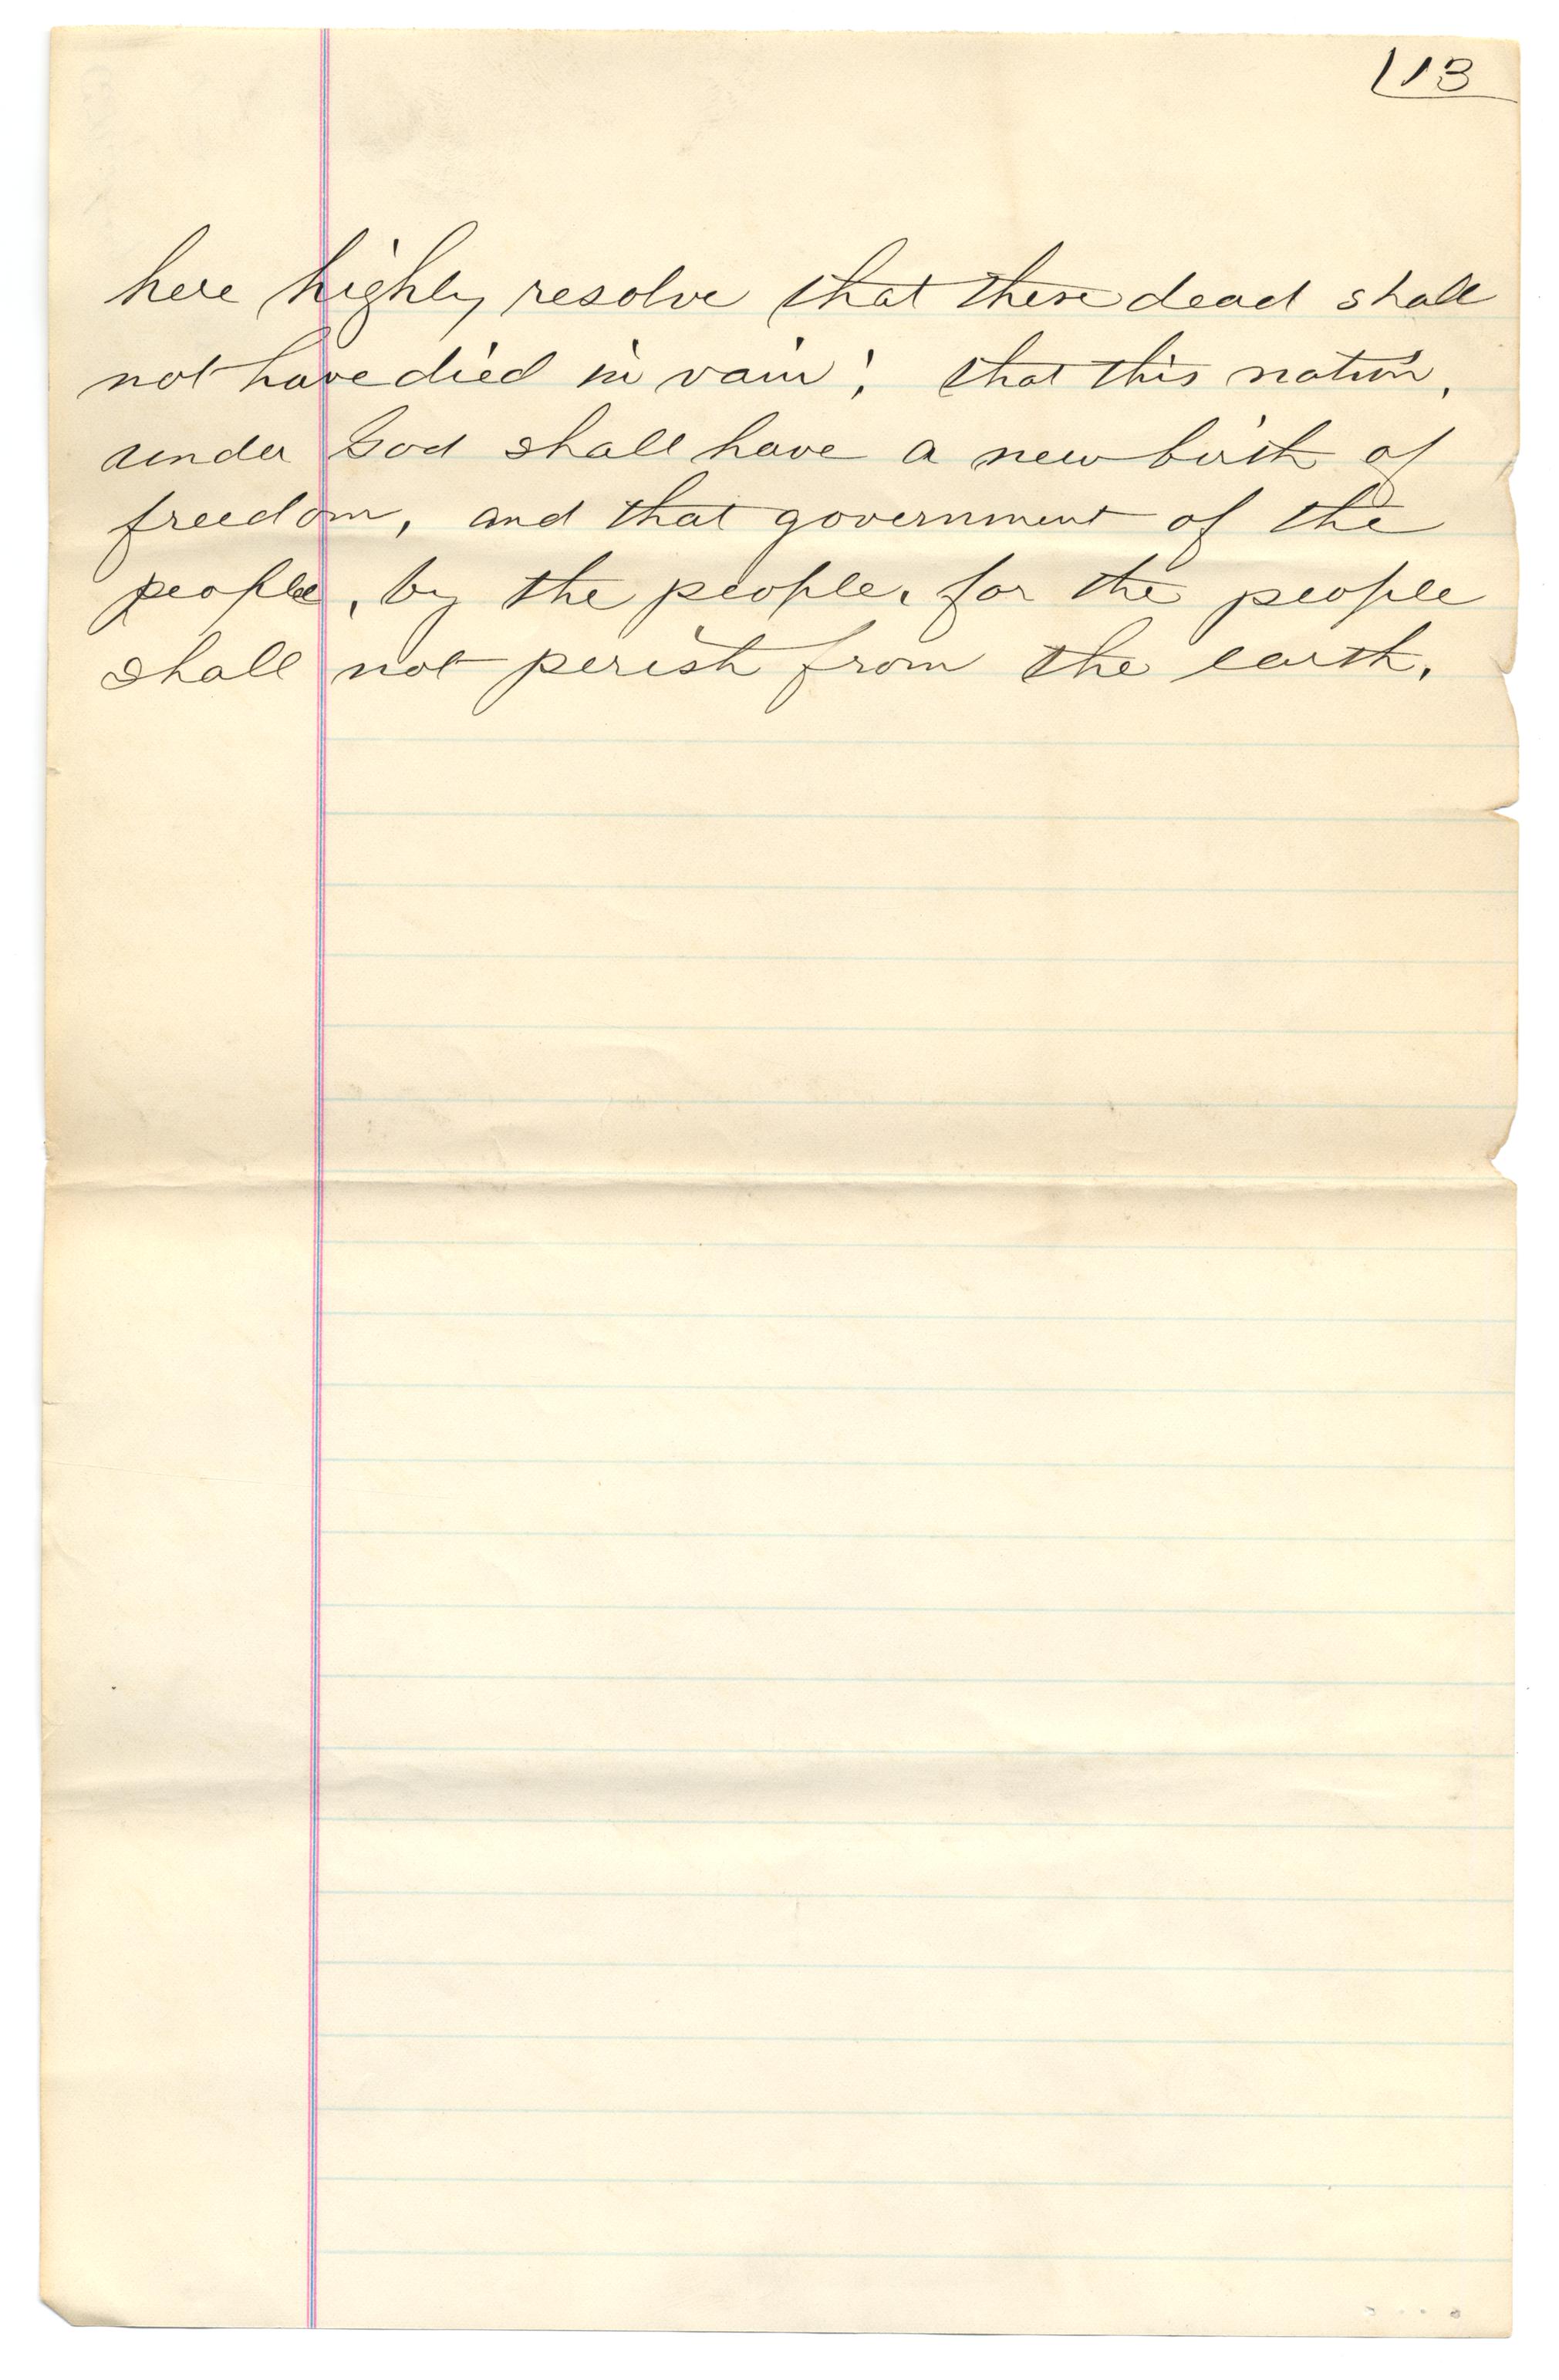 13
here highly resolve that these dead shall
not have died in vain; that this nation,
under God shall have a new birth of
freedom, and that government of the
people, by the people, for the people
shall not perish from the earth.